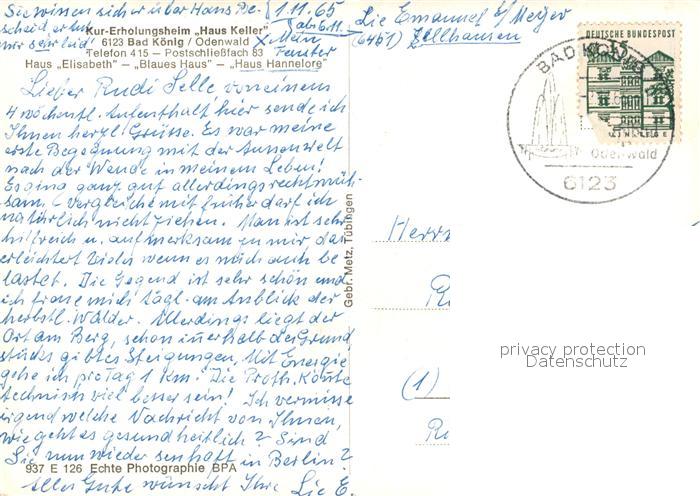 Sie wissen sicher über Hans Be-
scheid, er tut
mir sehr leid!
1.11.65
ab 6.11.
x Mein
Fenster
Lie Emanuel b/ Meyer
(6451) Zellhausen
Kur-Erholungsheim „Haus Keller"
6123 Bad König / Odenwald
Telefon 415 — Postschließfach 83
Haus „Elisabeth" — „Blaues Haus" — „Haus Hannelore"
DEUTSCHE BUNDESPOST
15
BAD KÖNIG
Odenwald
6123
Lieber Rudi Selle, von einem
4 wöchentl. Aufenthalt hier sende ich
Ihnen herzl. Grüsse. Es war meine
erste Begegnung mit der Aussenwelt
nach der Wende in meinem Leben!
Es ging ganz gut allerdings recht müh-
sam. Vergleiche mit früher darf ich
natürlich nicht ziehen. Man ist sehr
hilfreich u. aufmerksam zu mir, das
erleichtert Vieles wenn es mich auch be
lastet. Die Gegend ist sehr schön und
ich freue mich tägl. am Anblick der
herbstl. Wälder. Allerdings liegt der
Ort am Berg, schon innerhalb des Grund
stücks gibt es Steigungen. Mit Energie
gehe ich pro Tag 1 Km! Die Proth. könnte
technisch viel besser sein! Ich vermisse
irgend welche Nachricht von Ihnen,
wie geht es gesundheitlich? Sind
Sie nun wieder sesshaft in Berlin?
Alles Gute wünscht Ihre Lie E.
937 E 126 Echte Photographie BPA
Gebr. Metz, Tübingen
Herrn
(1)
privacy protection
Datenschutz